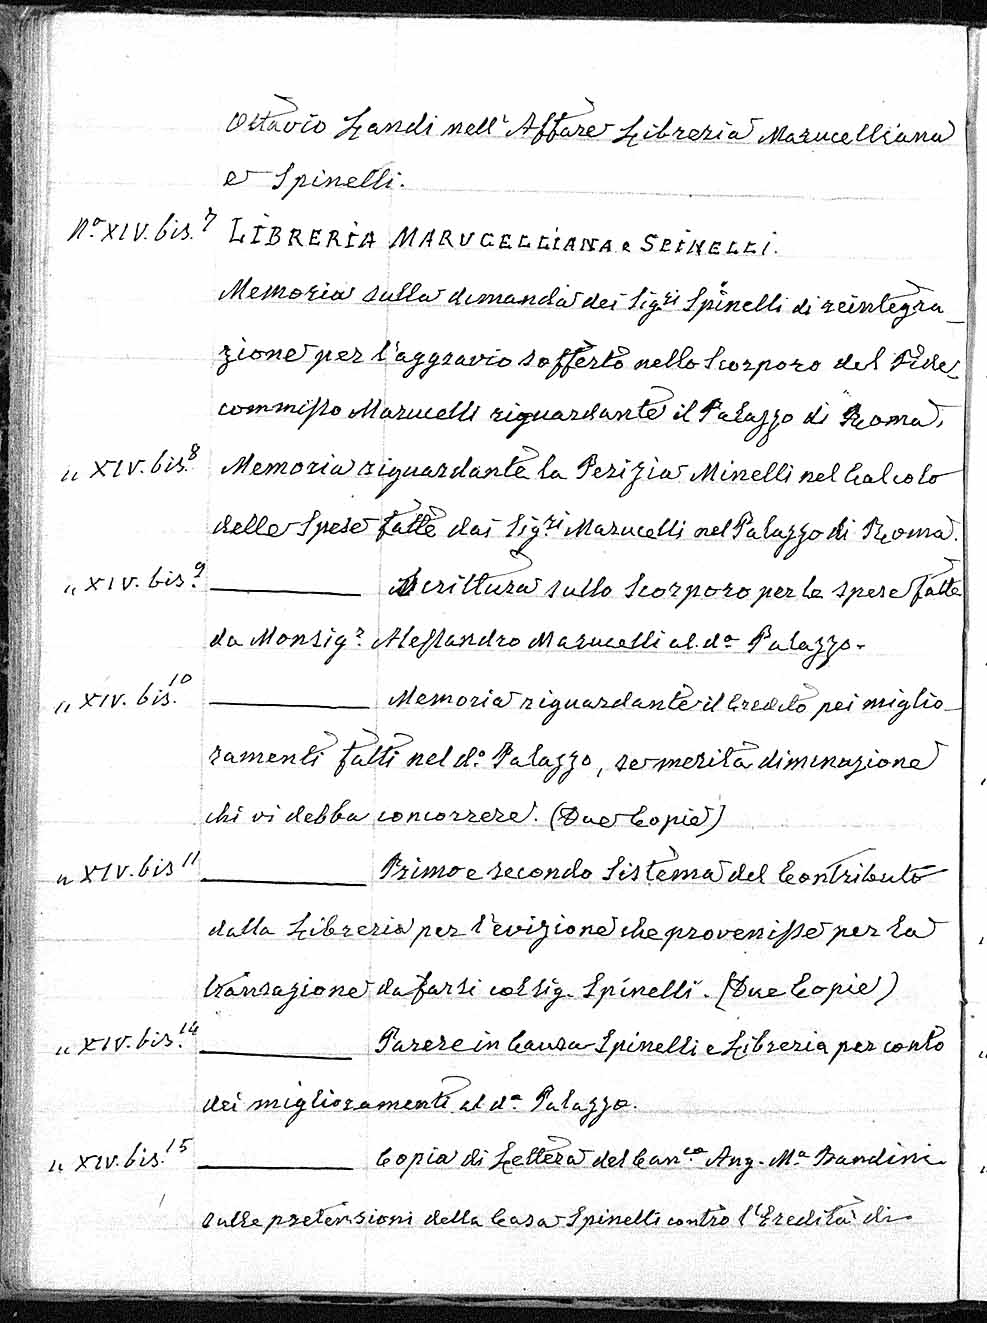 Ottavio Landi nell'Affare Libreria Marucelliana
e Spinelli.
N.º XIV. bis. 7 LIBRERIA MARUCELLIANA e SPINELLI.
Memoria sulla dimanda dei Sigri Spinelli di reintegra_
zione per l'aggravio sofferto nello Scorporo del Fide_
commisso Marucelli riguardante il Palazzo di Roma.
„ XIV. bis. 8 Memoria riguardante la Perizia Minelli nel Calcolo
delle Spese fatte dai Sig.ri Marucelli nel Palazzo di Roma.
„ XIV. bis. 9 ——— Scrittura sullo Scorporo per le spese fatte
da Monsig.r Alessandro Marucelli al d.º Palazzo.
„ XIV. bis. 10 ——— Memoria riguardante il Credito pei miglio_
ramenti fatti nel d.º Palazzo, se merita diminazione
chi vi debba concorrere. (Due Copie)
„ XIV. bis 11 ——— Primo e secondo Sistema del Contributo
dalla Libreria per l'evizione che provenisse per la
transazione da farsi col sig. Spinelli. (Due Copie)
„ XIV. bis. 14 ——— Parere in Causa Spinelli e Libreria per conto
dei miglioramenti al d.º Palazzo.
„ XIV. bis. 15 ——— Copia di Lettera del Can.co Ang. M.a Bandini
sulle pretensioni della Casa Spinelli contro l'Eredità di